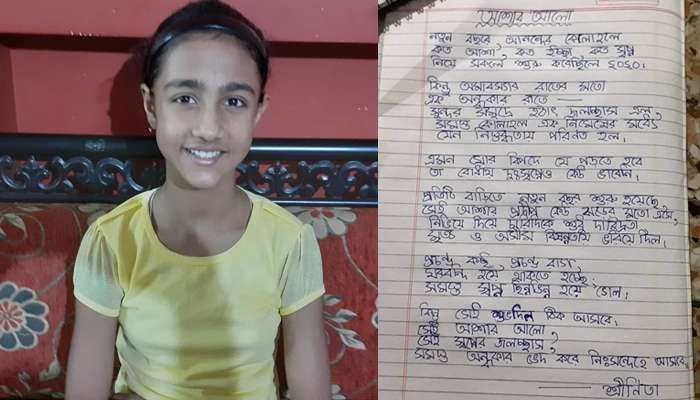 আশার আলো
নতুন বছরে আনন্দের কোলাহলে
কত আশা, কত ইচ্ছা, কত স্বপ্ন
নিয়ে সকলে শুরু করেছিলে ২০২০।
কিন্তু অমাবস্যার রাতের মতো
এক অন্ধকার রাতে —
সুন্দর সমুদ্রে হঠাৎ জলোচ্ছ্বাস এল,
সমস্ত কোলাহল এক নিমেষের মধ্যে
যেন নিস্তব্ধতায় পরিনত হল।
এমন ঘোর বিপদে যে পড়তে হবে
তা বোধহয় দুঃস্বপ্নেও কেউ ভাবেনি।
প্রতিটি বাড়িতে নতুন বছর শুরু হয়েছে
সেই আশার প্রদীপ কেউ ঝড়ের মতো এসে,
নিভিয়ে দিয়ে চারিদিকে শুধু দারিদ্রতা
দুঃখ ও অসীম বিষন্নতায় ভরিয়ে দিল।
প্রচন্ড কষ্ট, প্রচন্ড বাধা
ঘরবন্দি হয়ে থাকতে হচ্ছে,
সমস্ত স্বপ্ন ছিন্নভিন্ন হয়ে গেল।
কিন্তু সেই শুভদিন ঠিক আসবে।
সেই আশার আলো,
সেই সুখের জলোচ্ছ্বাস,
সমস্ত অন্ধকার ভেদ করে নিঃসন্দেহে আসবে।
— শ্রীনিতা